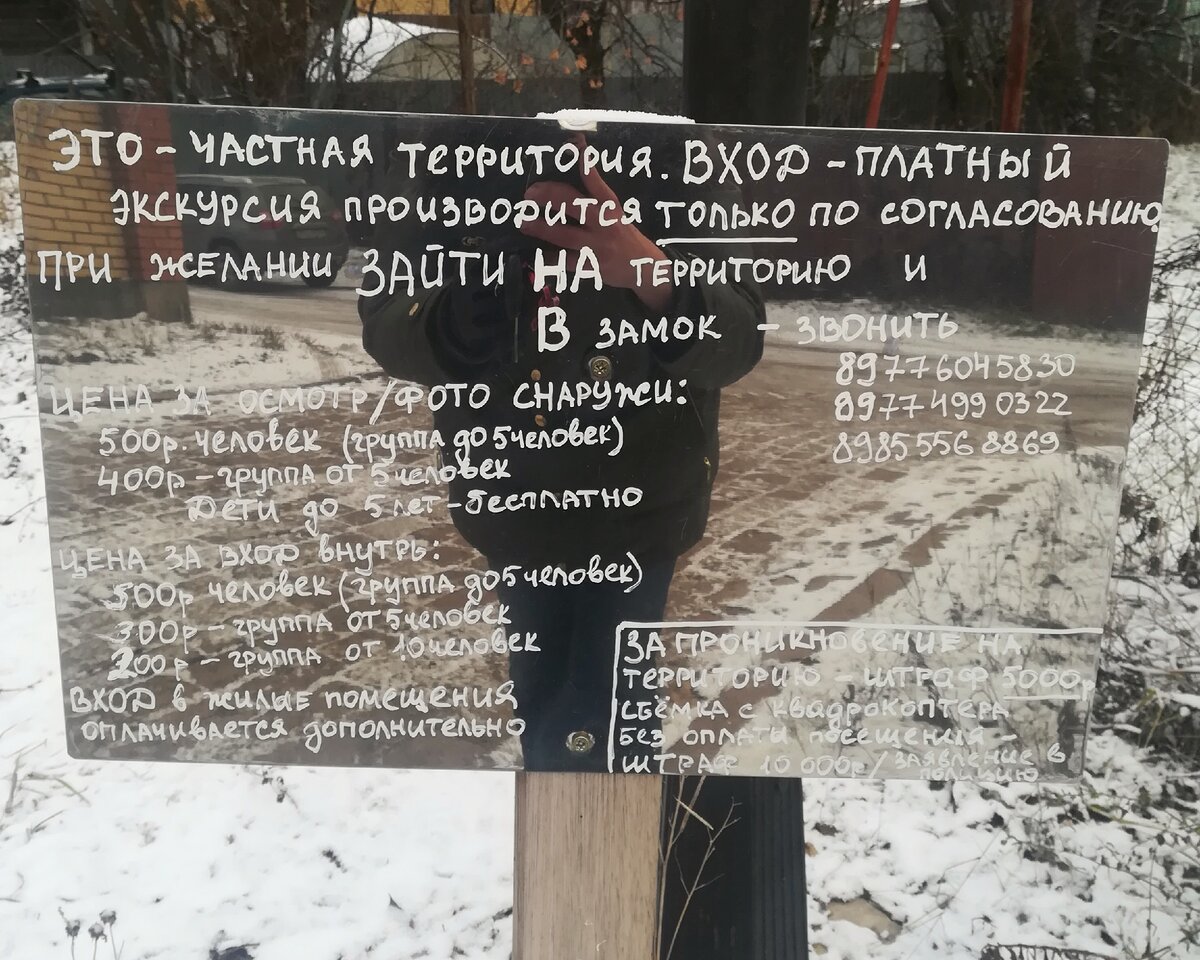 ЭТО - ЧАСТНАЯ ТЕРРИТОРИЯ. ВХОД - ПЛАТНЫЙ
ЭКСКУРСИЯ ПРОИЗВОДИТСЯ ТОЛЬКО ПО СОГЛАСОВАНИЮ
ПРИ ЖЕЛАНИИ ЗАЙТИ НА ТЕРРИТОРИЮ И
В ЗАМОК - ЗВОНИТЬ
89776045830
89774990322
89855568869
ЦЕНА ЗА ОСМОТР/ФОТО СНАРУЖИ:
500р. человек (группа до 5 человек)
400р - группа от 5 человек
Дети до 5 лет - бесплатно
ЦЕНА ЗА ВХОД внутрь:
500р человек (группа до 5 человек)
300р - группа от 5 человек
200р - группа от 10 человек
ВХОД в жилые помещения
оплачивается дополнительно
ЗА ПРОНИКНОВЕНИЕ НА
ТЕРРИТОРИЮ - ШТРАФ 5000р
СЪЁМКА С КВАДРОКОПТЕРА
БЕЗ ОПЛАТЫ ПОСЕЩЕНИЯ -
ШТРАФ 10 000р/ЗАЯВЛЕНИЕ В
ПОЛИЦИЮ